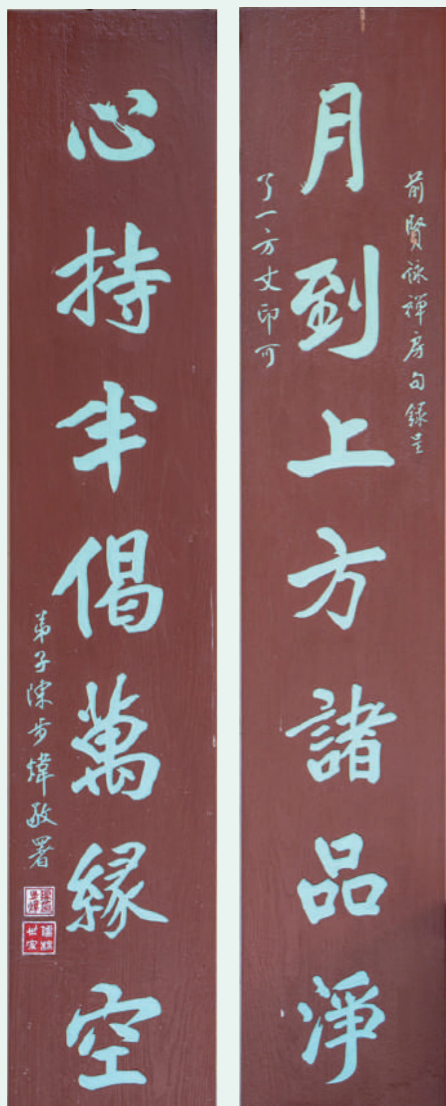 前賢詠禪房句錄呈
月到上方諸品淨
了一方丈印可
心持半偈萬緣空
弟子陳步煒敬署